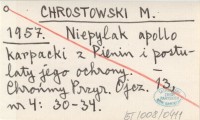 CHROSTOWSKI M.
1957. Niepylak apollo
karpacki z Pienin i postu-
laty jego ochrony. –
Chrońmy Przyr. Ojcz. 13,
nr 4: 30-34.
BJ/008/0411